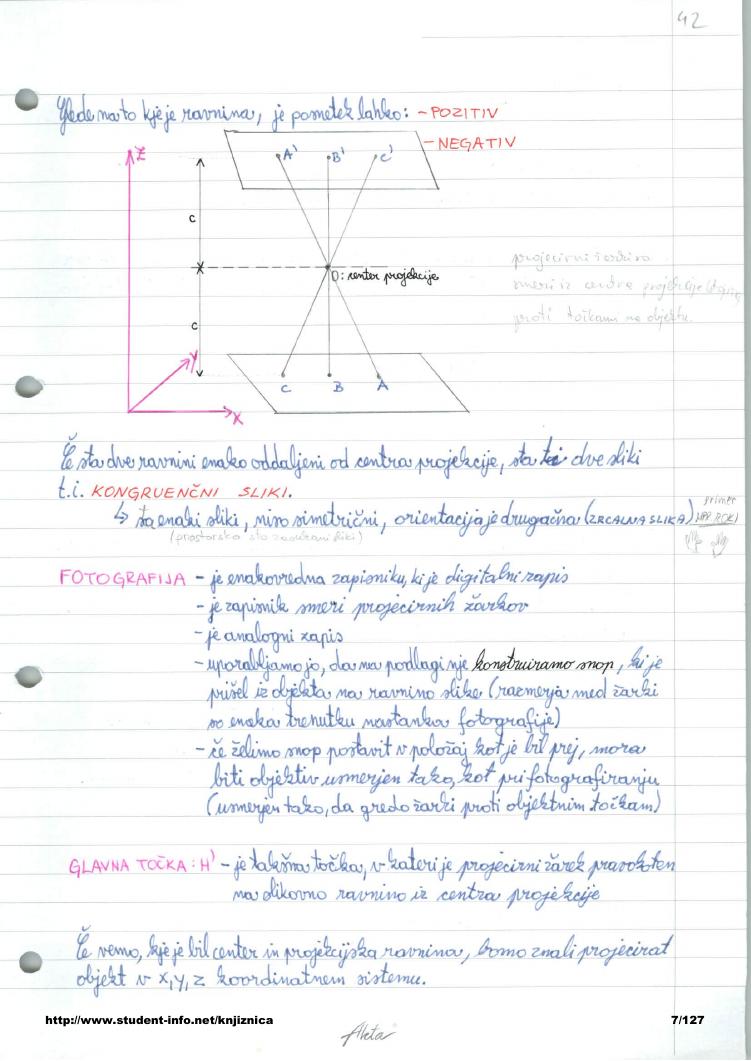 42
Glede na to kje je ravnina, je posnetek lahko: - POZITIV
- NEGATIV
Z
A' B' C'
c
O: center projekcije
projecirni žarki so
smeri iz centra projekcije
proti točkam na objektu.
c
Y
C B A
X
Če sta dve ravnini enako oddaljeni od centra projekcije, sta te dve sliki
t.i. KONGRUENČNI SLIKI.
↳ sta enaki sliki, niso simetrični, orientacija je drugačna (ZRCALNA SLIKA)
primer
NPR ROKI
FOTOGRAFIJA - je enakovredna zapisniku, ki je digitalni zapis
- je zapisnik smeri projecirnih žarkov
- je analogni zapis
- uporabljamo jo, da na podlagi nje konstruiramo snop, ki je
prišel iz objekta na ravnino slike (razmerja med žarki
so enaka trenutku nastanka fotografije)
- če želimo snop postavit v položaj kot je bil prej, mora
biti objektiv usmerjen tako, kot pri fotografiranju
(usmerjen tako, da gredo žarki proti objektnim točkam)
GLAVNA TOČKA: H' - je takšna točka, v kateri je projecirni žarek pravokoten
na slikovno ravnino iz centra projekcije
Če vemo, kje je bil center in projekcijska ravnina, bomo znali projecirat
objekt v x, y, z koordinatnem sistemu.
http://www.student-info.net/knjiznica
7/127